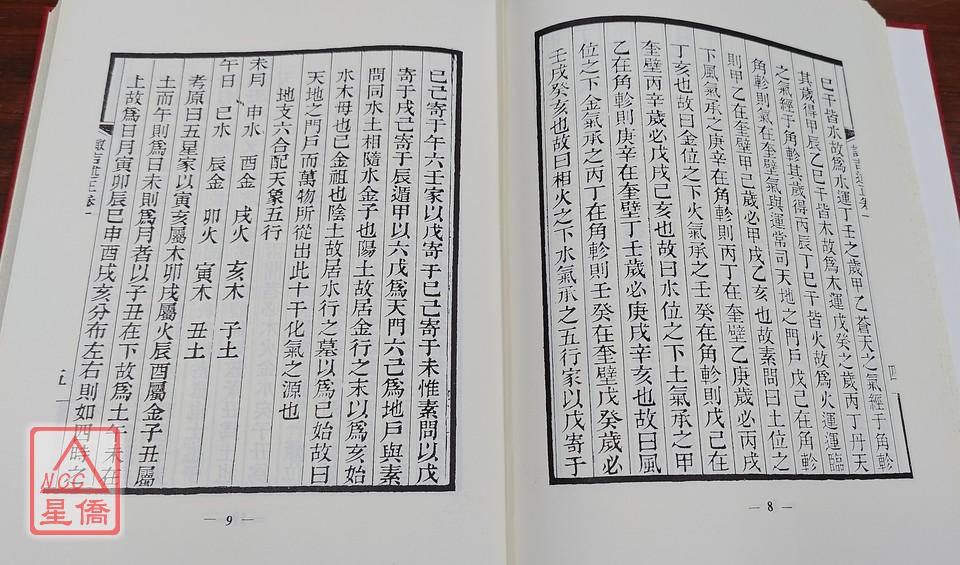 巳干皆水故爲水運丁壬之歲甲乙蒼天之氣經于角軫
其歲得甲辰乙巳干皆木故爲木運戊癸之歲丙丁丹天
之氣經于角軫其歲得丙辰丁巳干皆火故爲火運運臨
角軫則氣在奎壁氣與運常司天地之門戶戊己在角軫
則甲乙在奎壁甲己歲必甲戌乙亥也故素問曰土位之
下風氣承之庚辛在角軫則丙丁在奎壁乙庚歲必丙戌
丁亥也故曰金位之下火氣承之壬癸在角軫則戊己在
奎壁丙辛歲必戊戌己亥也故曰水位之下土氣承之甲
乙在角軫則庚辛在奎壁丁壬歲必庚戌辛亥也故曰風
位之下金氣承之丙丁在角軫則壬癸在奎壁戊癸歲必
壬戌癸亥也故曰相火之下水氣承之五行家以戊寄于
四
— 8 —
巳己寄于午六壬家以戊寄于巳己寄于未惟素問以戊
寄于戌己寄于辰遁甲以六戊爲天門六己爲地戶與素
問同水土相隨水金子也陽土故居金行之末以爲亥始
水木母也己金祖也陰土故居水行之墓以爲巳始故曰
天地之門戶而萬物所從出此十干化氣之源也
地支六合配天象五行
未月 申水 酉金 戌火 亥木 子土
午日 巳水 辰金 卯火 寅木 丑土
考原曰五星家以寅亥屬木卯戌屬火辰酉屬金子丑屬
土而午則爲日未則爲月者以子丑在下故爲土午未在
上故爲日月寅卯辰巳申酉戌亥分布左右則如四時之
五
— 9 —
NCC
星僑